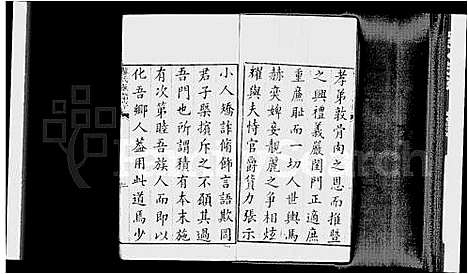 孝弟敦骨肉之思而推暨
之興禮義嚴閨門正適庶
重廉耻而一切人世輿馬
赫奕婢妾靚麗之爭相炫
耀與夫恃官爵貲力張示
小人矯詐脩飾言語欺罔
君子槩擯斥之不願其過
吾門也所謂積有本末施
有次第睦吾族人而即以
化吾鄉人葢用此道焉少